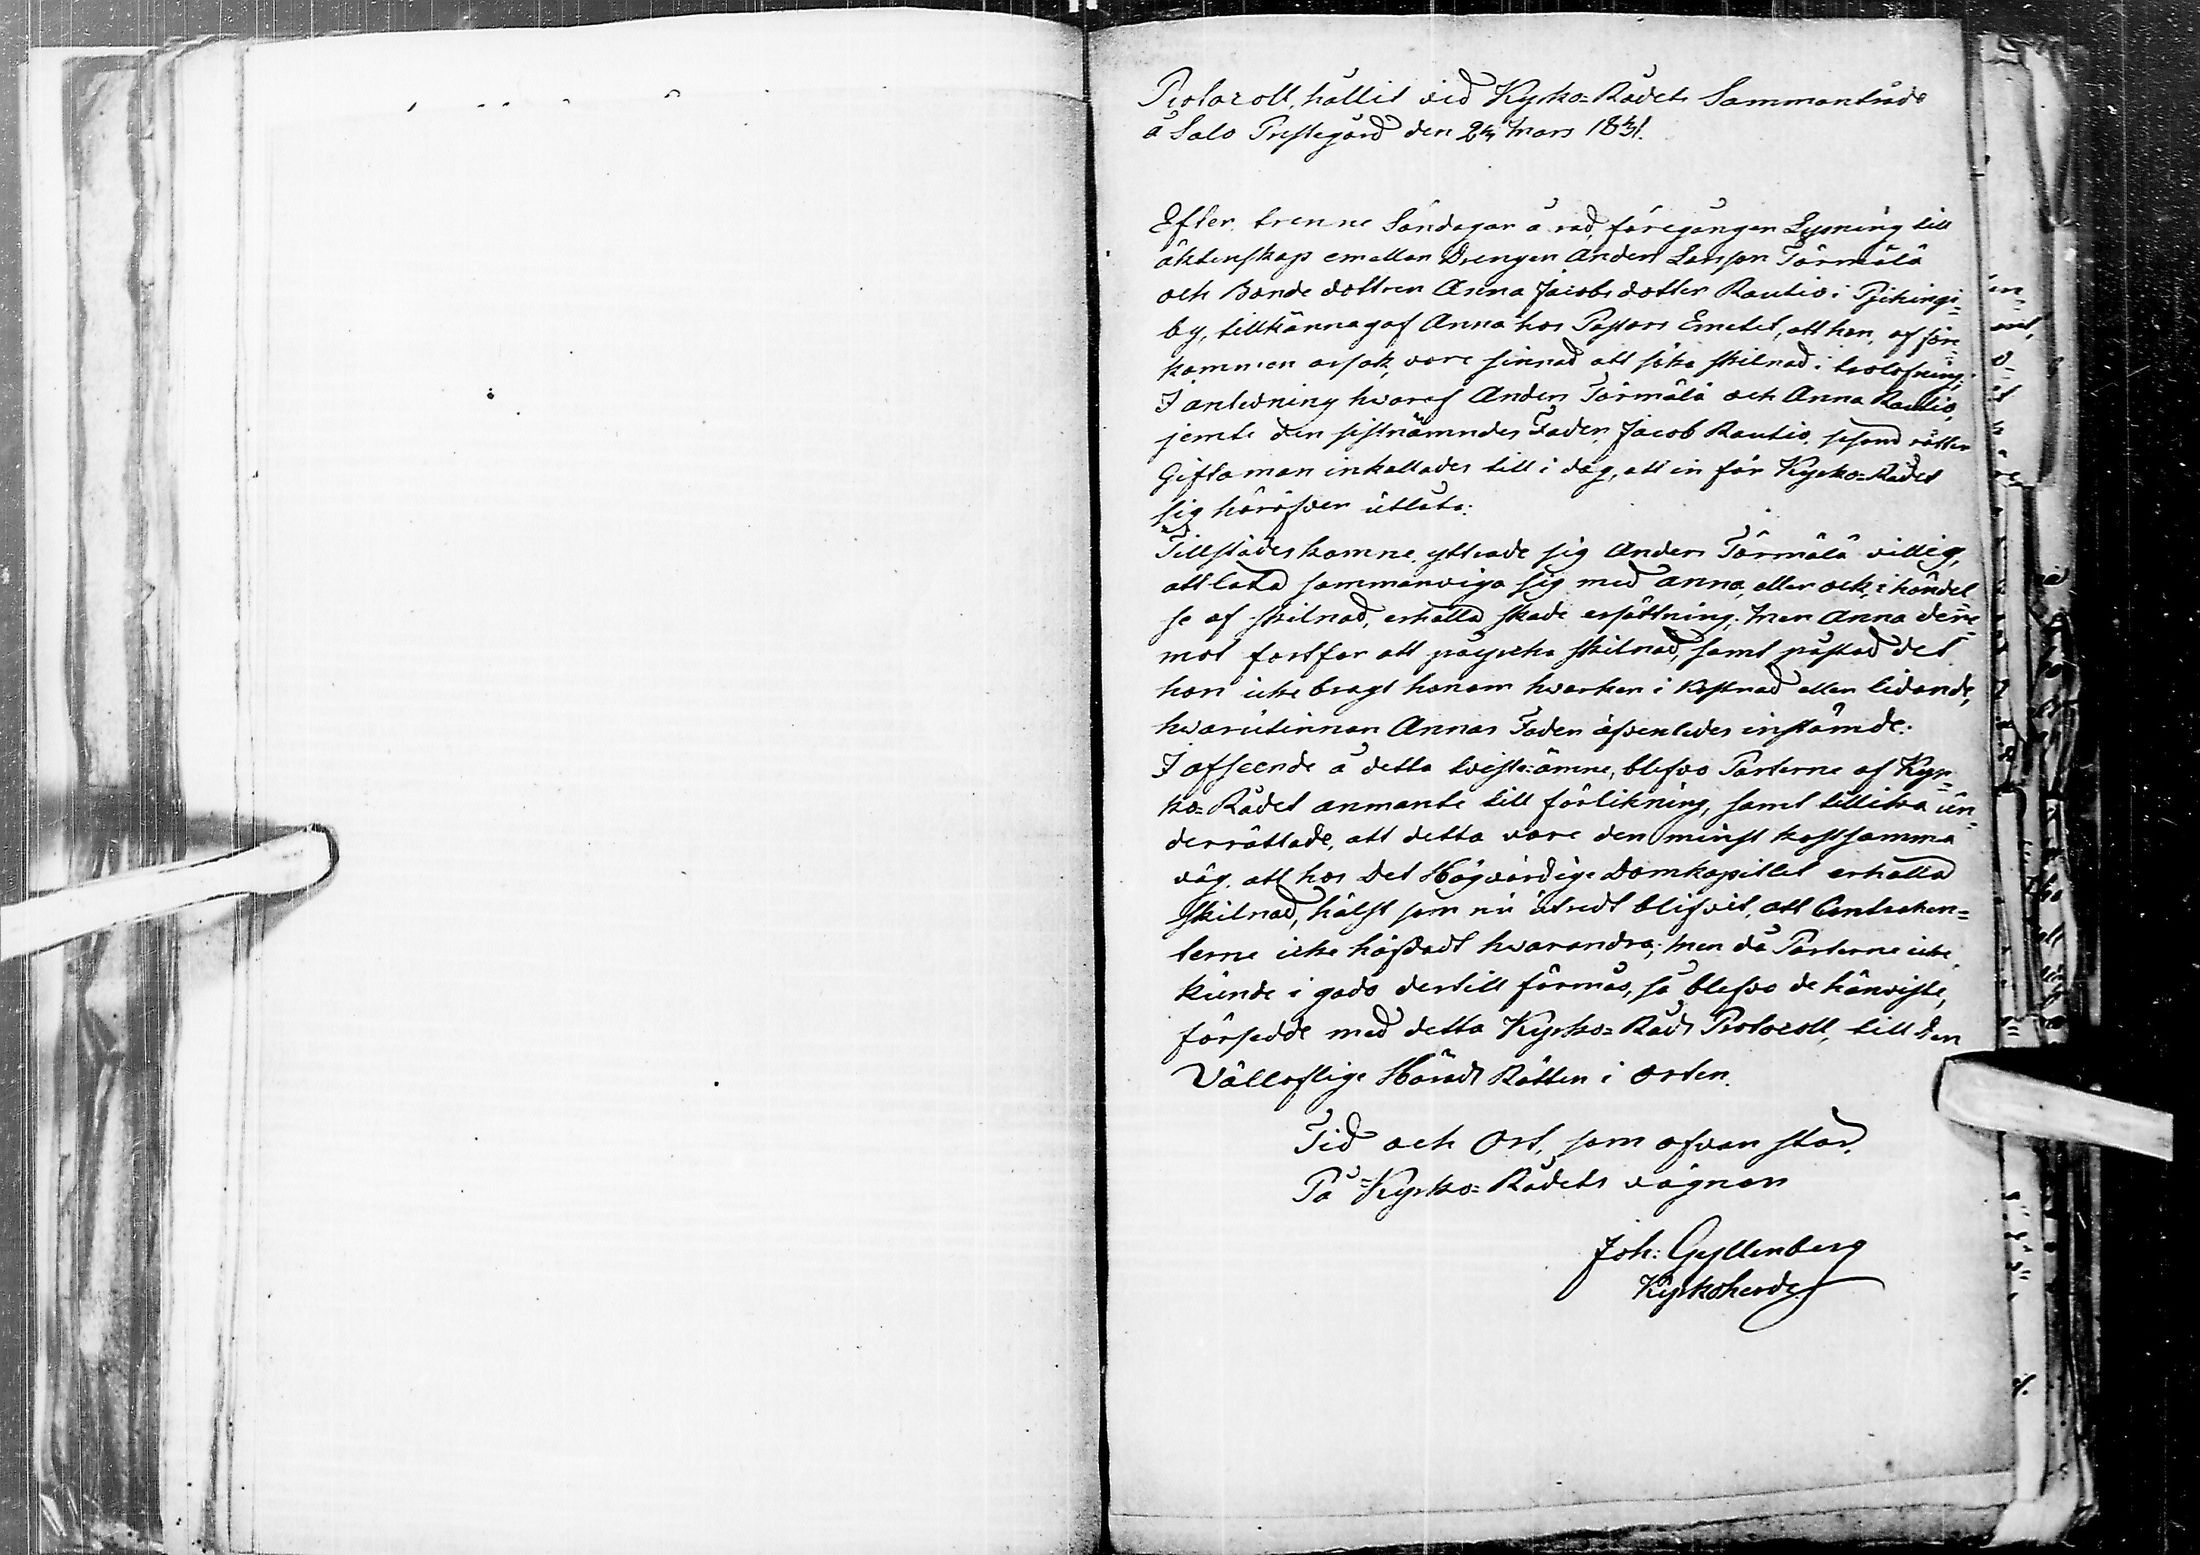 Protocoll, hållit vid Kyrko=Rådets Sammanträde
å Salo Prestegård den Mars
Efter trenne Söndagar å rad, föregången Lysning till
äktenskap emellan Drengen Anders Larsson Törmälä
och Bonde dottren Anna Jacobs dotter Rautio i
by, tillkännagaf Anna hos Pastors Embetet, att hon, af före=
kommen orsak, vore sinnad att söka skilnad i trolofning;
I anledning hvaraf Anders Törmälä och Anna Rautio,
jemte den sistnämndes Fader, Jacob Rautio, såsom rätter
Giftoman inkallades till i dag, att in för Kyrko=Rådet
sig häröfver utlåta:
Tillstädes komne yttrade sig Anders Törmälä villig,
att låta sammanviga sig med Anna, eller ock, i händel=
se af skilnad, erhålla skade ersättning; Men Anna dere=
mot fortfor att påyrka skilnad, samt påstod det
hon icke bragt honom hvarken i kostnad eller lidande,
hvarutinnan Annas Fader äfvenledes instämde.
I afseende å detta tviste=ämne, blefvo Parterne af Kyr=
ko=Rådet anmante till förlikning, samt tillika un=
derrättade, att detta vore den minst kostsamma
väg, att hos Det Högvördige Domkapitlet erhålla
skilnad, hälst som nu utredt blifvit, att Contrahen=
terne icke häfdadt hvarandra; men då Parterne icke
kunde i godo dertill förmås, så blefvo de hänviste,
försedde med detta Kyrko=Råds Protocoll, till den
Vällofliga Härads Rätten i Orten.
Tid och Ort, som ofvan står.
På Kyrko=Rådets vägnar
Joh: Gyllenberg
Kyrkoherde